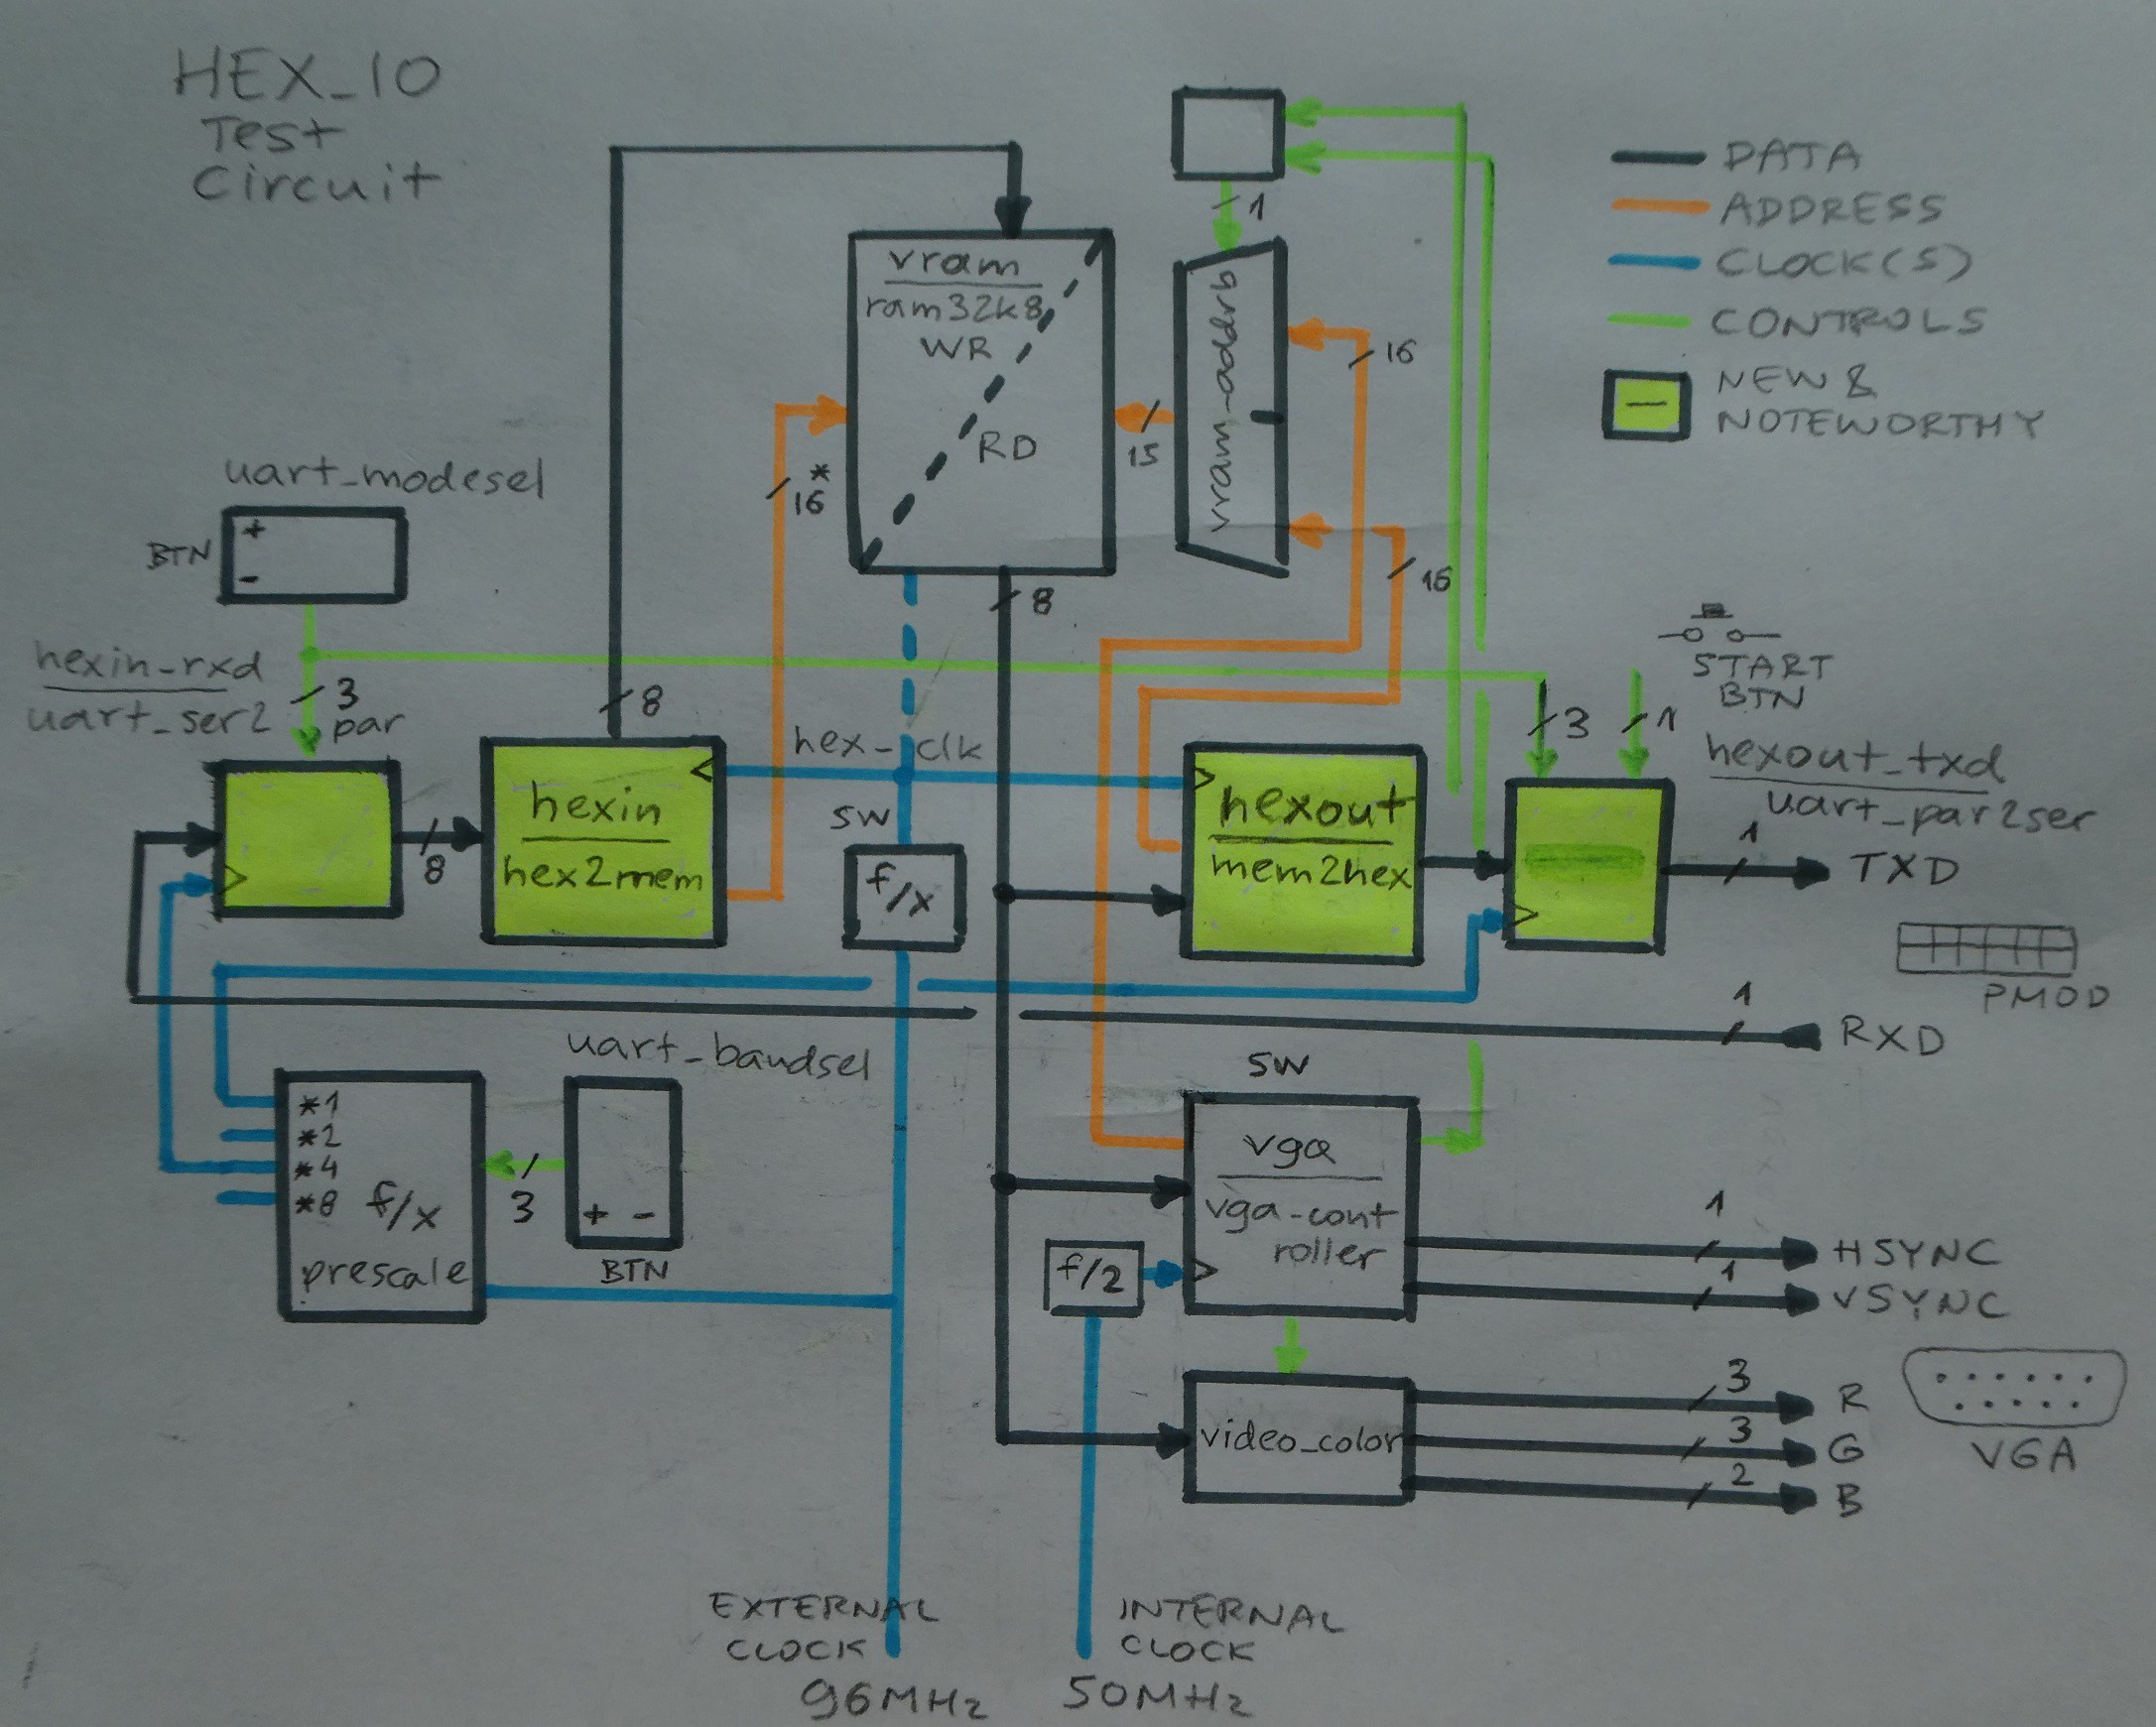 HEX_IO
Test
Circuit
DATA
ADDRESS
CLOCK(S)
CONTROLS
NEW &
NOTEWORTHY
1
vram
ram32k8
WR
RD
vram-addr
16
15
16
16*
8
uart_modesel
BTN
+
-
hexin_rxd
uart_ser2
par
3
8
hex_clk
START
BTN
3
1
hexout_txd
uart_par2ser
8
hexin
hex2mem
SW
f/x
hexout
mem2hex
1
TXD
PMOD
1
RXD
uart_baudsel
SW
*1
*2
*4
*8
f/x
prescale
3
+ -
BTN
vga
vga-cont
roller
f/2
1
HSYNC
1
VSYNC
video_color
3
R
3
G
2
B
VGA
EXTERNAL
CLOCK
96MHz
INTERNAL
CLOCK
50MHz